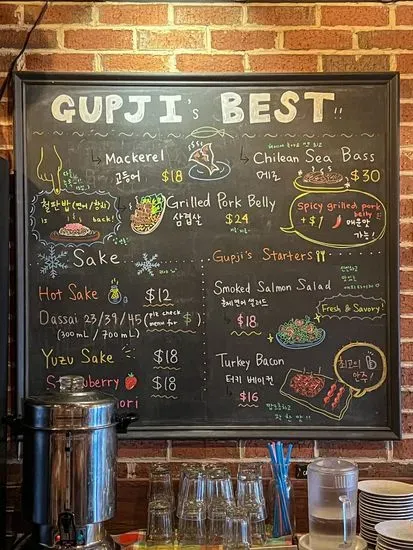 GUPJI's BEST!!
Mackerel
고등어 $18
Chilean Sea Bass
메로 $30
철판밥 (연어/참치)
is back!
Grilled Pork Belly
삼겹살 $24
Spicy grilled pork belly
+$1 매운맛 가능!
Sake
Hot Sake $12
Dassai 23/39/45 (Plz check menu for $)
(300mL / 700mL)
Yuzu Sake $18
$18
Gupji's Starters
Smoked Salmon Salad
훈제연어 샐러드
$18
Fresh & Savory
Turkey Bacon
터키 베이컨
$16
최고의 안주